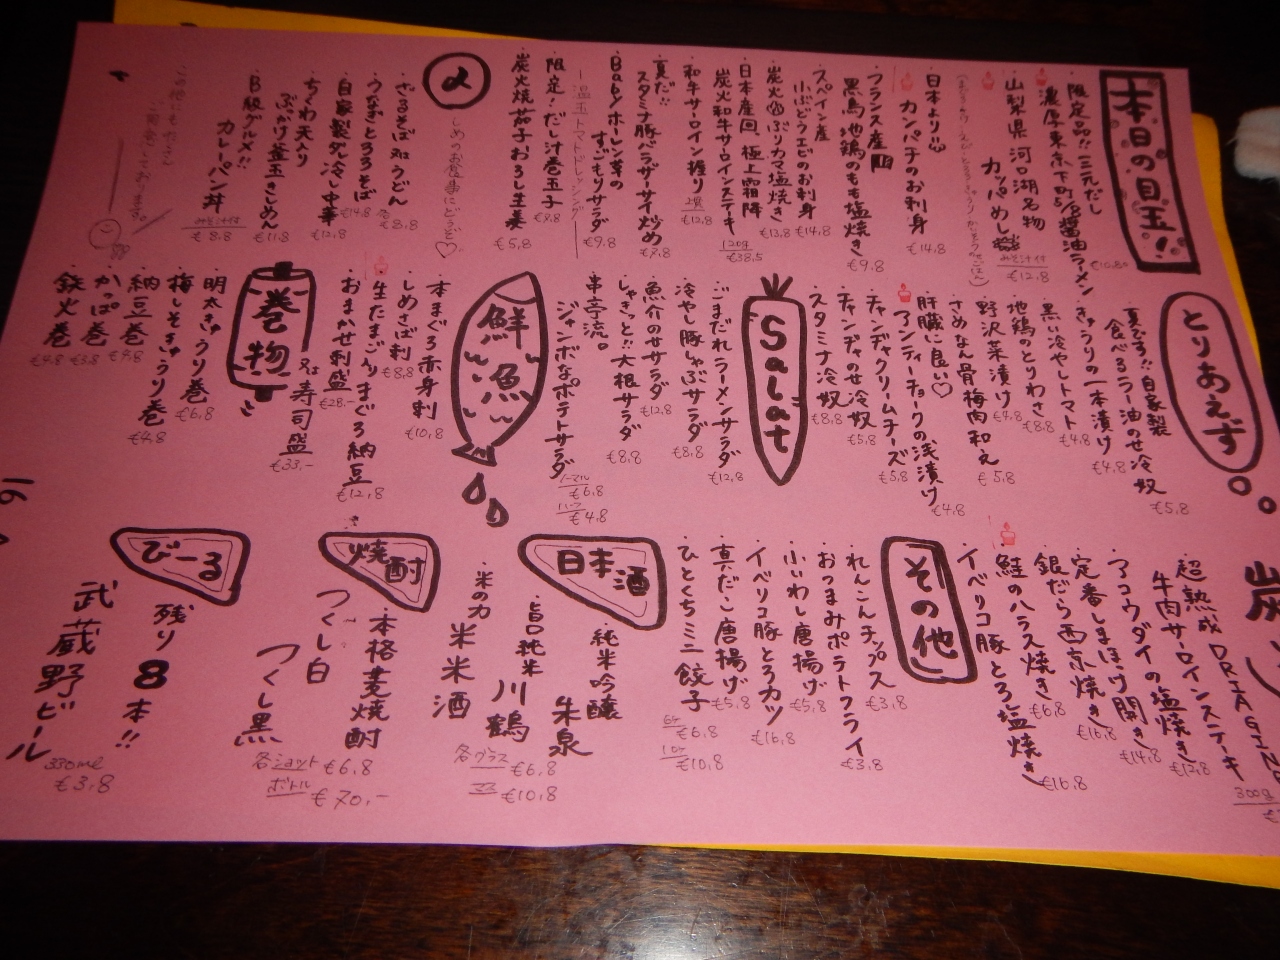 本日の目玉!
限定品!!三元だし
濃厚東京下町醤油ラーメン
山梨県河口湖名物
カッパめし
みそ汁付
€12,8
日本より
カンパチのお刺身
€14,8
フランス産
黒鳥地鶏のもも塩焼き
€9,8
スペイン産
小ぶどうエビのお刺身
€14,8
炭火ぶりカマ塩焼き
€13,8
日本産 極上霜降
炭火和牛サーロインステーキ
120g
€38,5
和牛サーロイン握り
2貫
€12,8
夏だ!!
スタミナ豚バラザーサイ炒め
€7,8
Babyホーレン草の
すごもりサラダ
€9,8
温玉トマトドレッシング
限定!だし汁巻玉子
€9,8
炭火焼茄子おろし生姜
€5,8
〆
しめのお食事にどうぞ♡
ざるそば 又は うどん
各€8,8
うなぎとろろそば
€14,8
自家製ダレ冷し中華
€12,8
ちくわ天入り
ぶっかけ釜玉きしめん
€11,8
B級グルメ!!
カレーパン丼
みそ汁付
€8,8
とりあえず
夏だゾ!!自家製
食べるラー油のせ冷奴
€5,8
きゅうりの一本漬け
€4,8
黒い冷やしトマト
€4,8
地鶏のとりわさ
€8,8
野沢菜漬け
€4,8
さめなん骨梅肉和え
€5,8
肝臓に良い♡
アンティーチョークの浅漬け
€4,8
チャンヂャクリームチーズ
€5,8
チャンヂャのせ冷奴
€5,8
スタミナ冷奴
€8,8
Salat
ごまだれラーメンサラダ
€12,8
冷やし豚しゃぶサラダ
€8,8
魚介のせサラダ
€12,8
しゃきっと!!大根サラダ
€8,8
串亭流。
ジャンボなポテトサラダ
ノーマル
€6,8
ハーフ
€4,8
鮮魚
本まぐろ赤身刺
€10,8
しめさば刺
€8,8
生たまごとりまぐろ納豆
€12,8
おまかせ刺盛
€28.-
又は寿司盛
€33.-
巻物
明太きゅうり巻
€6,8
梅しそきゅうり巻
€4,8
納豆巻
€4,8
かっぱ巻
€3,8
鉄火巻
€4,8
超熟成DRIAGING
牛肉サーロインステーキ
300g
アコウダイの塩焼き
€12,8
定番しまほっけ開き
€14,8
銀だら西京焼き
€16,8
鮭のハラス焼き
€6,8
イベリコ豚とろ塩焼き
€16,8
その他
れんこんチップス
€3,8
おつまみポテトフライ
€3,8
小いわし唐揚げ
€5,8
イベリコ豚とろカツ
€16,8
真だこ唐揚げ
€5,8
ひとくちミニ餃子
6ケ
€6,8
10ケ
€10,8
日本酒
純米吟醸
朱泉
旨口純米
川鶴
米の力
米米酒
各グラス €6,8
マス €10,8
焼酎
本格麦焼酎
つくし白
つくし黒
各ショット €6,8
ボトル €70,-
びーる
残り8本!!
武蔵野ビール
330ml
€3,8